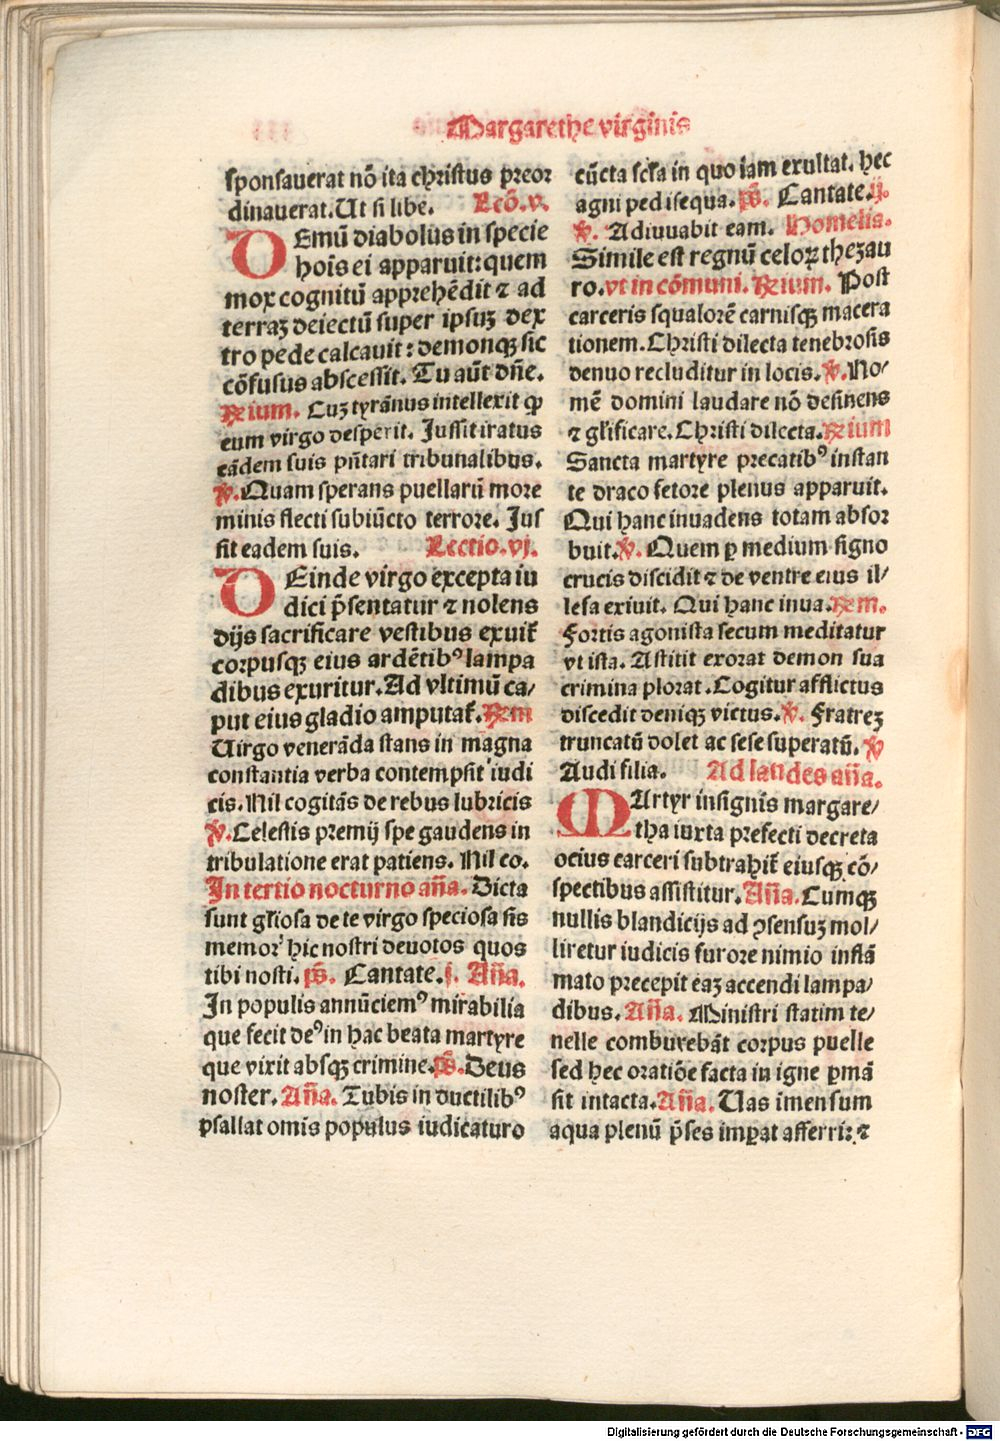 Margarethe virginis
sponsauerat nō ita christus preor
dinauerat. Ut si libe. Lcō. v.
DEmū diabolus in specie
hoīs ei apparuit: quem
mox cognitū apprehēdit ⁊ ad
terraꝫ deiectū super ipsuꝫ dex
tro pede calcauit: demonqꝫ sic
cōfusus abscessit. Tu aūt dn̄e.
R̄ium. Cuꝫ tyrānus intellexit ꝙ
eum virgo desperit. Jussit iratus
eādem suis pn̄tari tribunalibus.
V̄. Quam sperans puellarū more
minis flecti subiūcto terrore. Jus
sit eadem suis. Lectio. vj.
DEinde virgo excepta iu
dici p̄sentatur ⁊ nolens
dijs sacrificare vestibus exuit̄
corpusqꝫ eius ardētibꝰ lampa
dibus exuritur. Ad vltimū ca/
put eius gladio amputat̄. R̄em
Uirgo venerāda stans in magna
constantia verba contempsit iudi
cis. Nil cogitās de rebus lubricis
V̄. Celestis premij spe gaudens in
tribulatione erat patiens. Nil co.
In tertio nocturno an̄a. Dicta
sunt gl̄iosa de te virgo speciosa sis
memor hic nostri deuotos quos
tibi nosti. ps̄. Cantate. j. An̄a.
In populis annūciemꝰ mirabilia
que fecit deꝰ in hac beata martyre
que vixit absqꝫ crimine. ps̄. Deus
noster. An̄a. Tubis in ductilibꝰ
psallat omīs populus iudicaturo
cūcta scl̄a in quo iam exultat. hec
agni ped isequa. ps̄. Cantate. ij.
V̄. Adiuuabit eam. Homelia.
Simile est regnū celoꝝ thezau
ro. vt in cōmuni. R̄ium. Post
carceris squalorē carnisqꝫ macera
tionem. Christi dilecta tenebrosīs
denuo recluditur in locis. V̄. No/
mē domini laudare nō desinens
⁊ gl̄ificare. Christi dilecta. R̄ium
Sancta martyre precatibꝰ instan
te draco fetore plenus apparuit.
Qui hanc inuadens totam absor
buit. V̄. Quem ꝑ medium signo
crucis discidit ⁊ de ventre eius il/
lesa exiuit. Qui hanc inua. R̄em.
Fortis agonista secum meditatur
vt ista. Astitit exorat demon sua
crimina plorat. Cogitur afflictus
discedit deniqꝫ victus. V̄. Fratreꝫ
truncatū dolet ac sese superatū. V̄
Audi filia. Ad laudes an̄a.
MArtyr insignis margare/
tha iuxta prefecti decreta
ocius carceri subtrahit̄ eiusqꝫ cō/
spectibus assistitur. An̄a. Cumqꝫ
nullis blandicijs ad ꝯsensuꝫ mol/
liretur iudicis furore nimio inflā
mato precepit eaꝫ accendi lampa/
dibus. An̄a. Ministri statim te/
nelle comburebāt corpus puelle
sed hec oratiōe facta in igne ꝑmā
sit intacta. An̄a. Uas imensum
aqua plenū p̄ses imꝑat afferri: ⁊
Digitalisierung gefördert durch die Deutsche Forschungsgemeinschaft - DFG